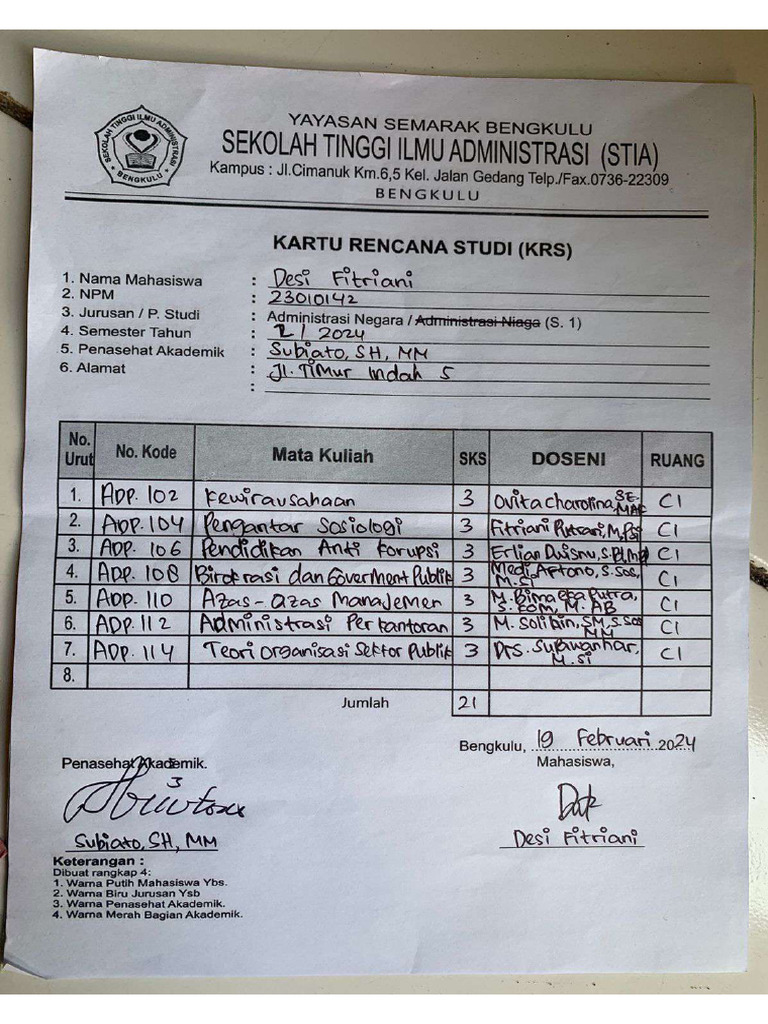 SEKOLAH TINGGI ILMU ADMINISTRASI
BENGKULU
YAYASAN SEMARAK BENGKULU
SEKOLAH TINGGI ILMU ADMINISTRASI (STIA)
Kampus : Jl.Cimanuk Km.6,5 Kel. Jalan Gedang Telp./Fax.0736-22309
BENGKULU
KARTU RENCANA STUDI (KRS)
1. Nama Mahasiswa : Desi Fitriani
2. NPM : 23010142
3. Jurusan / P. Studi : Administrasi Negara / Administrasi Niaga (S. 1)
4. Semester Tahun : 2 / 2024
5. Penasehat Akademik : Subiato, SH, MM
6. Alamat : Jl. Timur Indah 5
:
No. Urut No. Kode Mata Kuliah SKS DOSENI RUANG
1. ADP. 102 Kewirausahaan 3 Ovita Charolina, SE. MAK C1
2. ADP. 104 Pengantar Sosiologi 3 Fitriani Putrani, M,Psi C1
3. ADP. 106 Pendidikan Anti Korupsi 3 Erlian Dwisnu, S.PI, C1
4. ADP. 108 Birokrasi dan Goverment Publik 3 Medi Aptono, S.Sos, M.Si C1
5. ADP. 110 Azas-azas Manajemen 3 M. Bima Eka Putra, S.Kom, M.AB C1
6. ADP. 112 Administrasi Perkantoran 3 M. Solihin, SM, S.Sos MM C1
7. ADP. 114 Teori Organisasi Sektor Publik 3 Drs. Sulawanhar, M.Si C1
8.
Jumlah 21
Bengkulu, 19 Februari 2024
Penasehat Akademik. Mahasiswa,
Subiato, SH, MM Desi Fitriani
Keterangan :
Dibuat rangkap 4:
1. Warna Putih Mahasiswa Ybs.
2. Warna Biru Jurusan Ysb
3. Warna Penasehat Akademik.
4. Warna Merah Bagian Akademik.